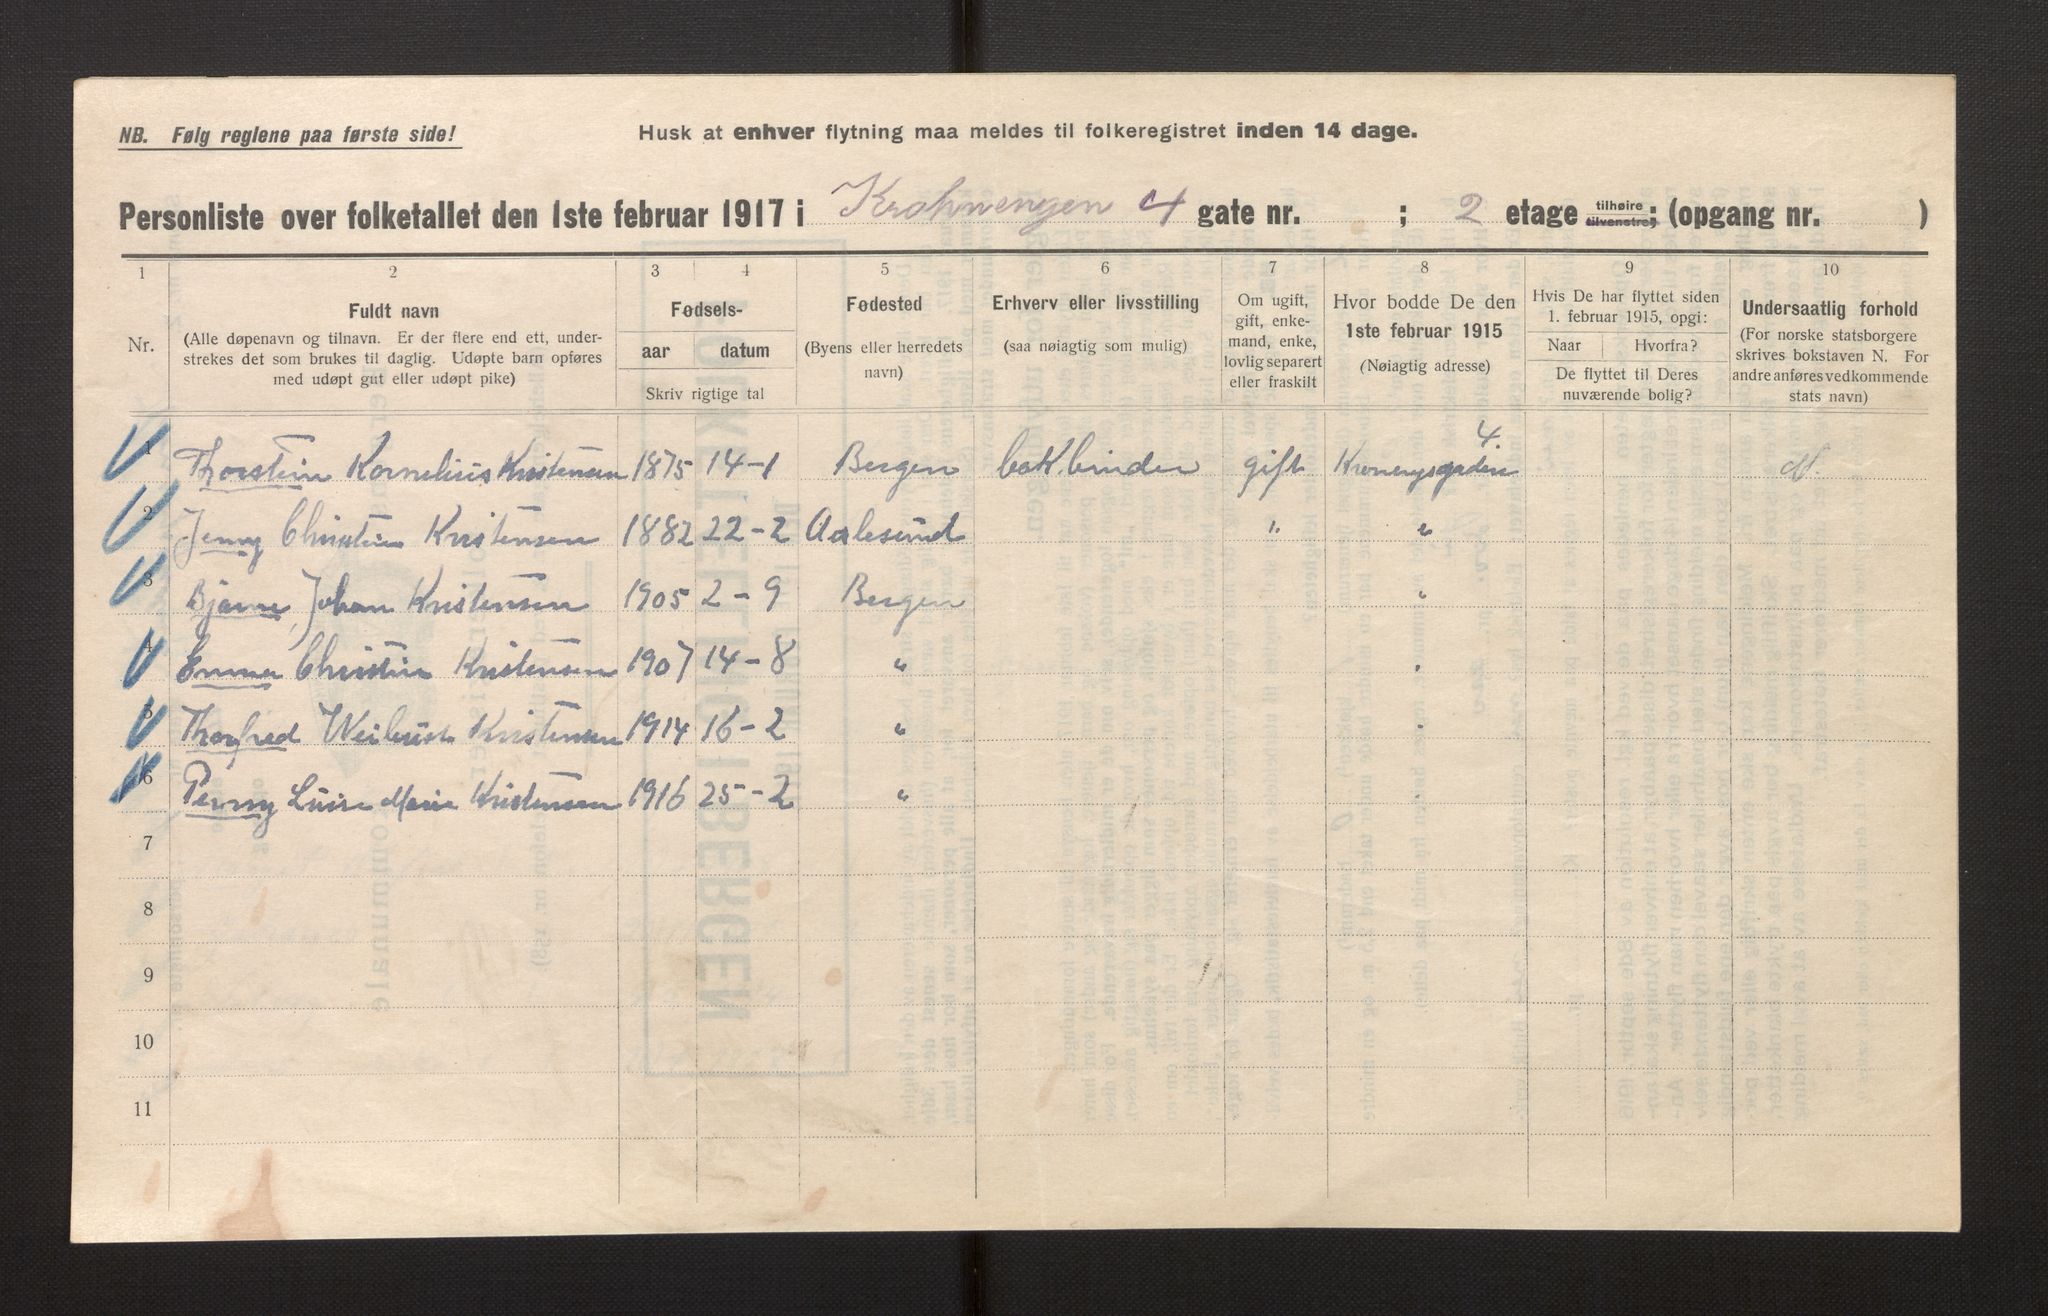 NB. Følg reglene paa første side!
Husk at enhver flytning maa meldes til folkeregistret inden 14 dage.
Personliste over folketallet den 1ste februar 1917 i Krohnengen 4 gate nr. ; 2 etage tilhøire tilvenstre; (opgang nr. )
1 2 3 4 5 6 7 8 9 10
Nr.
Fuldt navn
(Alle døpenavn og tilnavn. Er der flere end ett, under-
strekes det som brukes til daglig. Udøpte barn opføres
med udøpt gut eller udøpt pike)
Fødsels-
aar datum
Skriv rigtige tal
Fødested
(Byens eller herredets
navn)
Erhverv eller livsstilling
(saa nøiagtig som mulig)
Om ugift,
gift, enke-
mand, enke,
lovlig separert
eller fraskilt
Hvor bodde De den
1ste februar 1915
(Nøiagtig adresse)
Hvis De har flyttet siden
1. februar 1915, opgi:
Naar Hvorfra?
De flyttet til Deres
nuværende bolig?
Undersaatlig forhold
(For norske statsborgere
skrives bokstaven N. For
andre anføres vedkommende
stats navn)
4.
1 Thorstein Kornelius Kristensen 1875 14-1 Bergen bokbinder gift N.
2 Jenny Christin Kristensen 1882 22-2 Aalesund " "
3 Bjarne Johan Kristensen 1905 2-9 Bergen "
4 Emma Christin Kristensen 1907 14-8 " "
5 Thorfred Kristensen 1914 16-2 " "
6 Penny Luise Marie Kristensen 1916 25-2 "
7
8
9
10
11